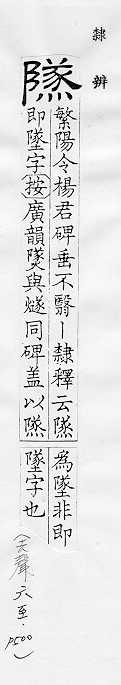 隸辨
隊
繁陽令楊君碑垂不翳丨隸釋云隊為墜非即
即墜字按廣韻墜與燧同碑盖以隊墜字也
(去聲六至·P500)